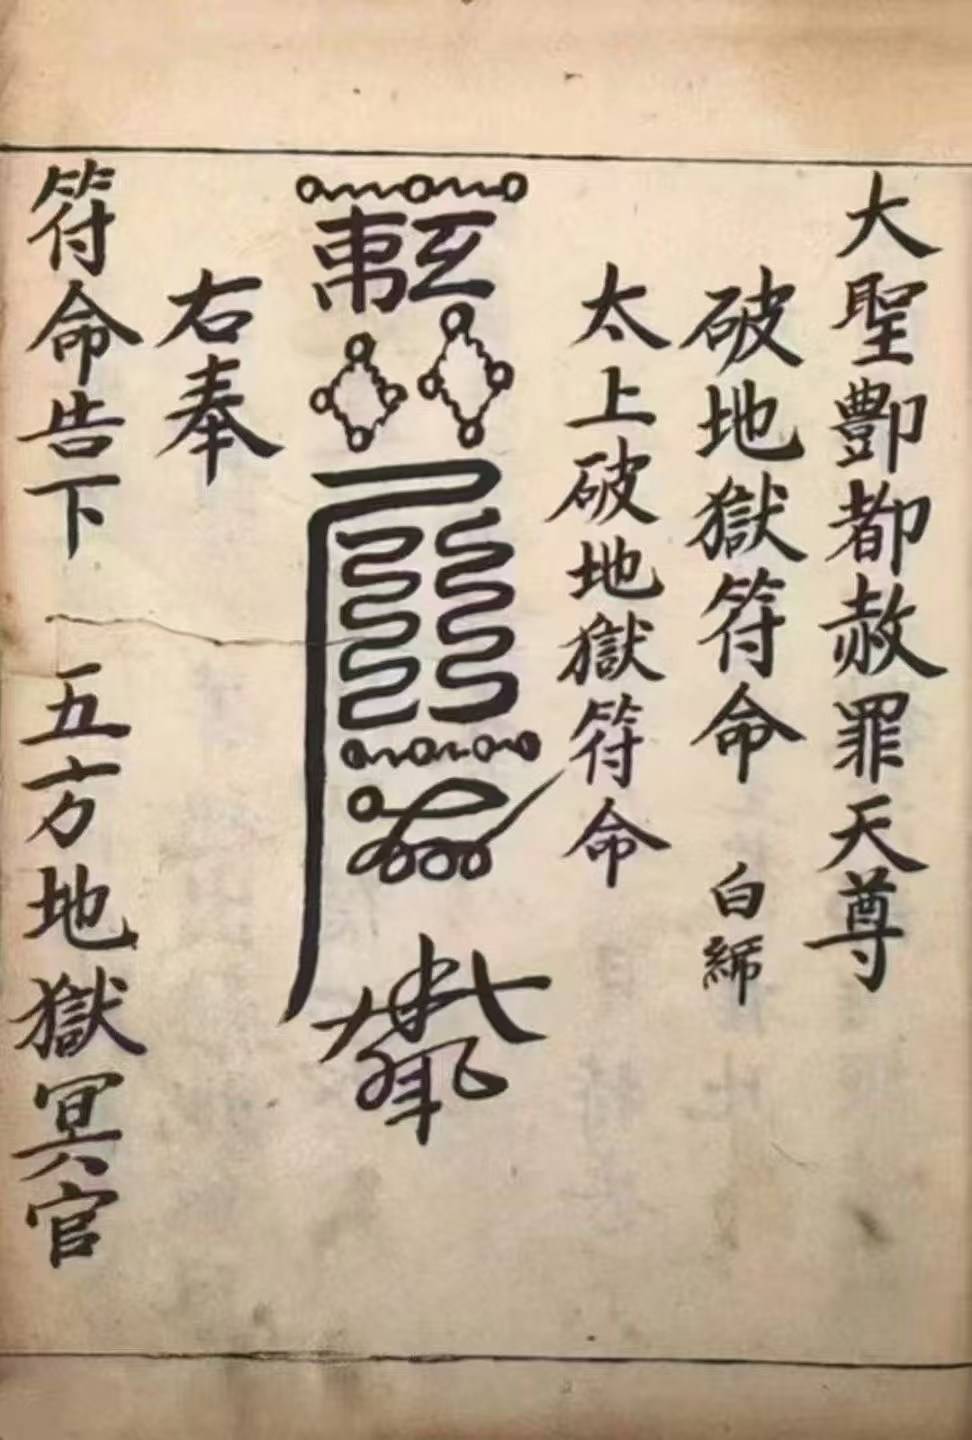 大聖酆都赦罪天尊
破地獄符命 白綈
太上破地獄符命
右奉
符命告下 五方地獄冥官